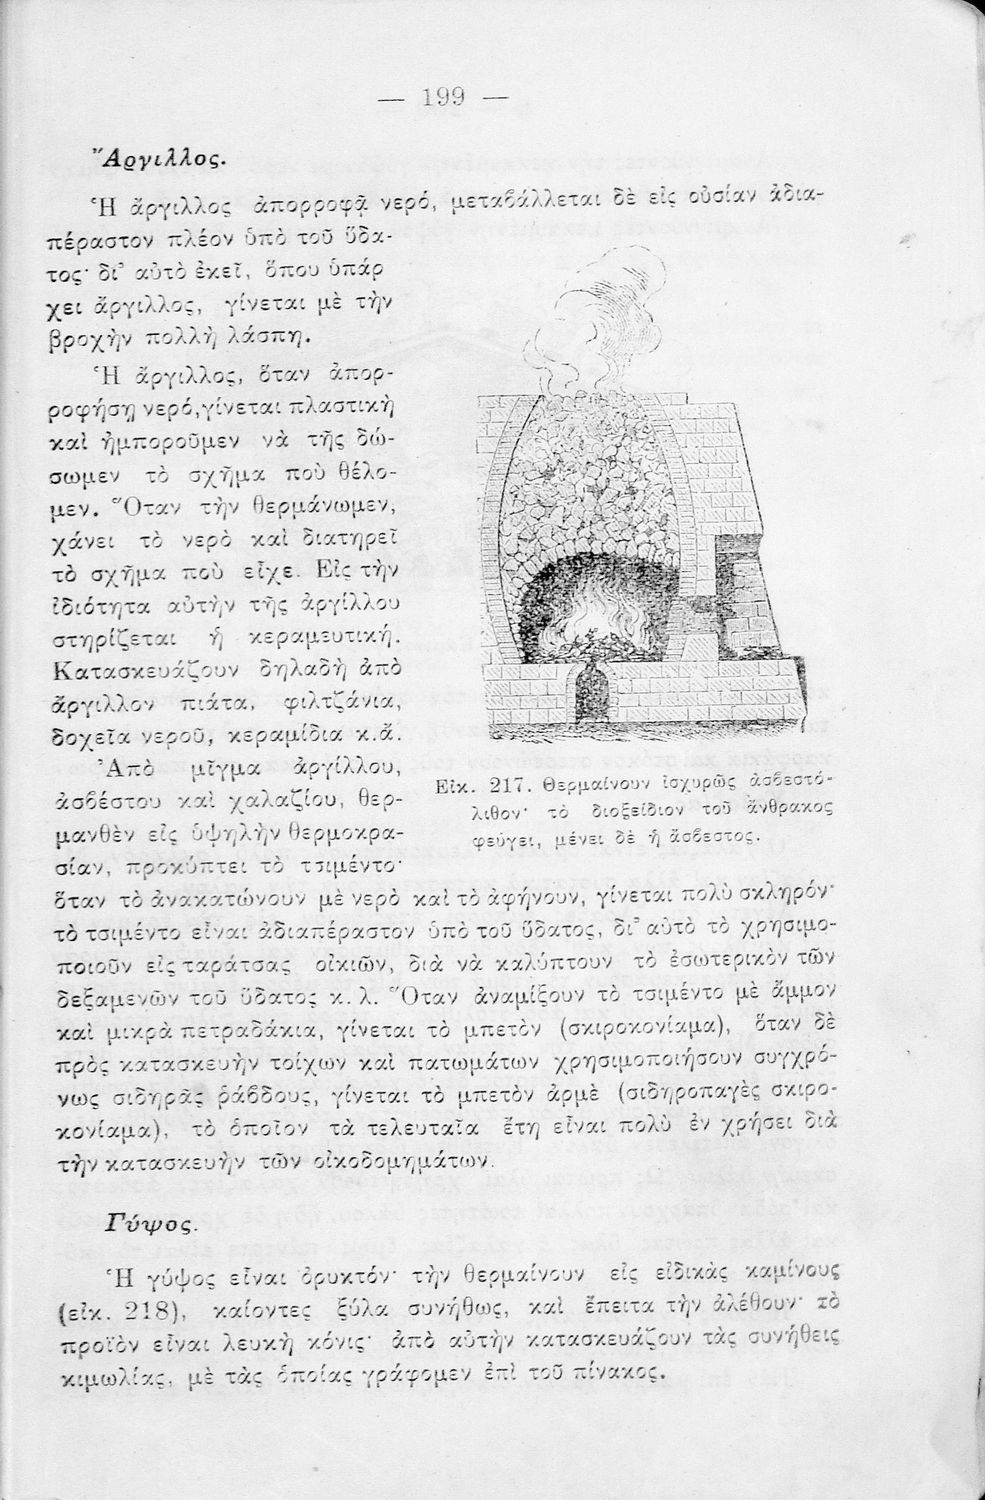 — 199 —
Ἄργιλλος.
Ἡ ἄργιλλος ἀπορροφᾷ νερό, μεταβάλλεται δὲ εἰς οὐσίαν ἀδια-
πέραστον πλέον ὑπὸ τοῦ ὕδα-
τος· δι᾽ αὐτὸ ἐκεῖ, ὅπου ὑπάρ
χει ἄργιλλος, γίνεται μὲ τὴν
βροχὴν πολλὴ λάσπη.
Ἡ ἄργιλλος, ὅταν ἀπορ-
ροφήσῃ νερό, γίνεται πλαστικὴ
καὶ ἠμποροῦμεν νὰ τῆς δώ-
σωμεν τὸ σχῆμα ποὺ θέλο-
μεν. Ὅταν τὴν θερμάνωμεν,
χάνει τὸ νερὸ καὶ διατηρεῖ
τὸ σχῆμα ποὺ εἶχε. Εἰς τὴν
ἰδιότητα αὐτὴν τῆς ἀργίλλου
στηρίζεται ἡ κεραμευτική.
Κατασκευάζουν δηλαδὴ ἀπὸ
ἄργιλλον πιάτα, φιλτζάνια,
δοχεῖα νεροῦ, κεραμίδια κ.ἄ.
Ἀπὸ μῖγμα ἀργίλλου,
ἀσβέστου καὶ χαλαζίου, θερ-
μανθὲν εἰς ὑψηλὴν θερμοκρα-
σίαν, προκύπτει τὸ τσιμέντο·
ὅταν τὸ ἀνακατώνουν μὲ νερὸ καὶ τὸ ἀφήνουν, γίνεται πολὺ σκληρόν·
τὸ τσιμέντο εἶναι ἀδιαπέραστον ὑπὸ τοῦ ὕδατος, δι᾽ αὐτὸ τὸ χρησιμο-
ποιοῦν εἰς ταράτσας οἰκιῶν, διὰ νὰ καλύπτουν τὸ ἐσωτερικὸν τῶν
δεξαμενῶν τοῦ ὕδατος κ. λ. Ὅταν ἀναμίξουν τὸ τσιμέντο μὲ ἄμμον
καὶ μικρὰ πετραδάκια, γίνεται τὸ μπετὸν (σκιροκονίαμα), ὅταν δὲ
πρὸς κατασκευὴν τοίχων καὶ πατωμάτων χρησιμοποιήσουν συγχρό-
νως σιδηρᾶς ῥάβδους, γίνεται τὸ μπετὸν ἀρμὲ (σιδηροπαγὲς σκιρο-
κονίαμα), τὸ ὁποῖον τὰ τελευταῖα ἔτη εἶναι πολὺ ἐν χρήσει διὰ
τὴν κατασκευὴν τῶν οἰκοδομημάτων.
Εἰκ. 217. Θερμαίνουν ἰσχυρῶς ἀσβεστό-
λιθον· τὸ διοξείδιον τοῦ ἄνθρακος
φεύγει, μένει δὲ ἡ ἄσβεστος.
Γύψος.
Ἡ γύψος εἶναι ὀρυκτόν· τὴν θερμαίνουν εἰς εἰδικὰς καμίνους
(εἰκ. 218), καίοντες ξύλα συνήθως, καὶ ἔπειτα τὴν ἀλέθουν· τὸ
προϊὸν εἶναι λευκὴ κόνις· ἀπὸ αὐτὴν κατασκευάζουν τὰς συνήθεις
κιμωλίας, μὲ τὰς ὁποίας γράφομεν ἐπὶ τοῦ πίνακος.